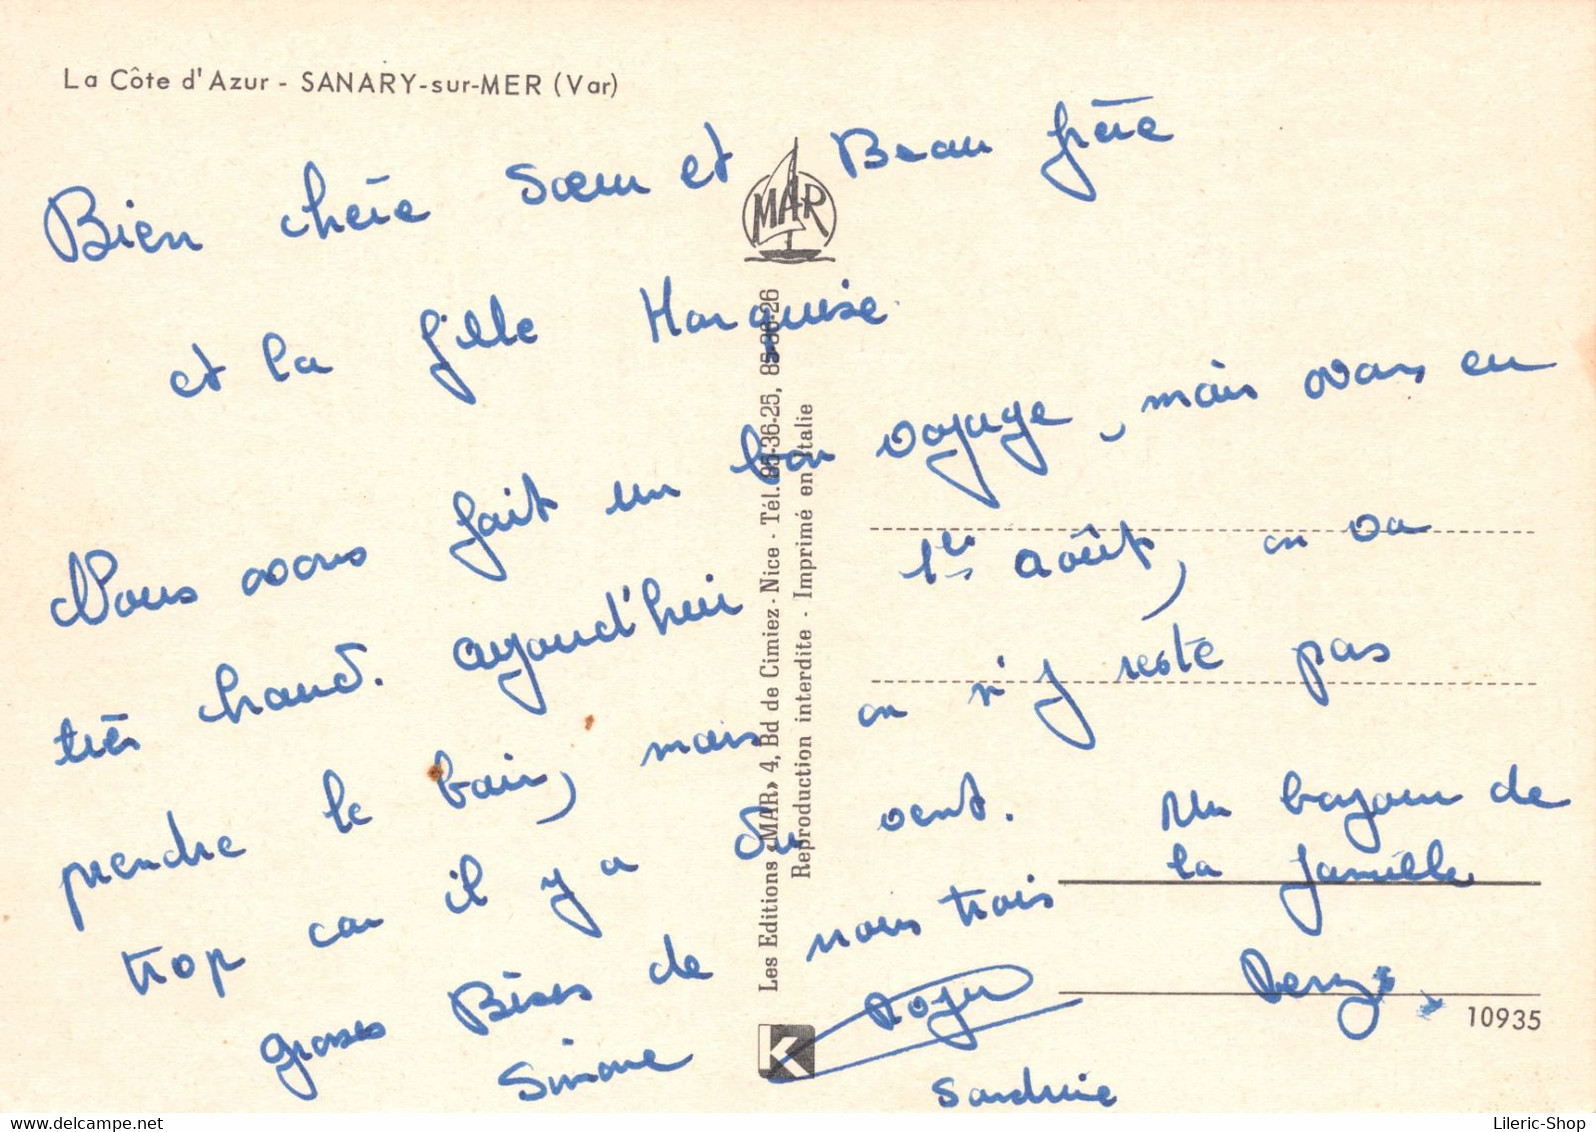 La Côte d'Azur - SANARY-sur-MER (Var)
Bien chère Sœur et Beau frère
et la fille Marquise.
Nous avons fait un bon voyage, mais avons eu
très chaud. aujourd'hui 1er août, on va
prendre le bain, mais on n'y reste pas
trop car il y a du vent.
grosses Bises de nous trois
Simone Roger
Sandrine
Un bonjour de
la famille
MAR
Les Editions «MAR» 4, Bd de Cimiez - Nice - Tél. 85-36-25, 85-36-26
Reproduction interdite - Imprimé en Italie
K
10935
Lileric-Shop